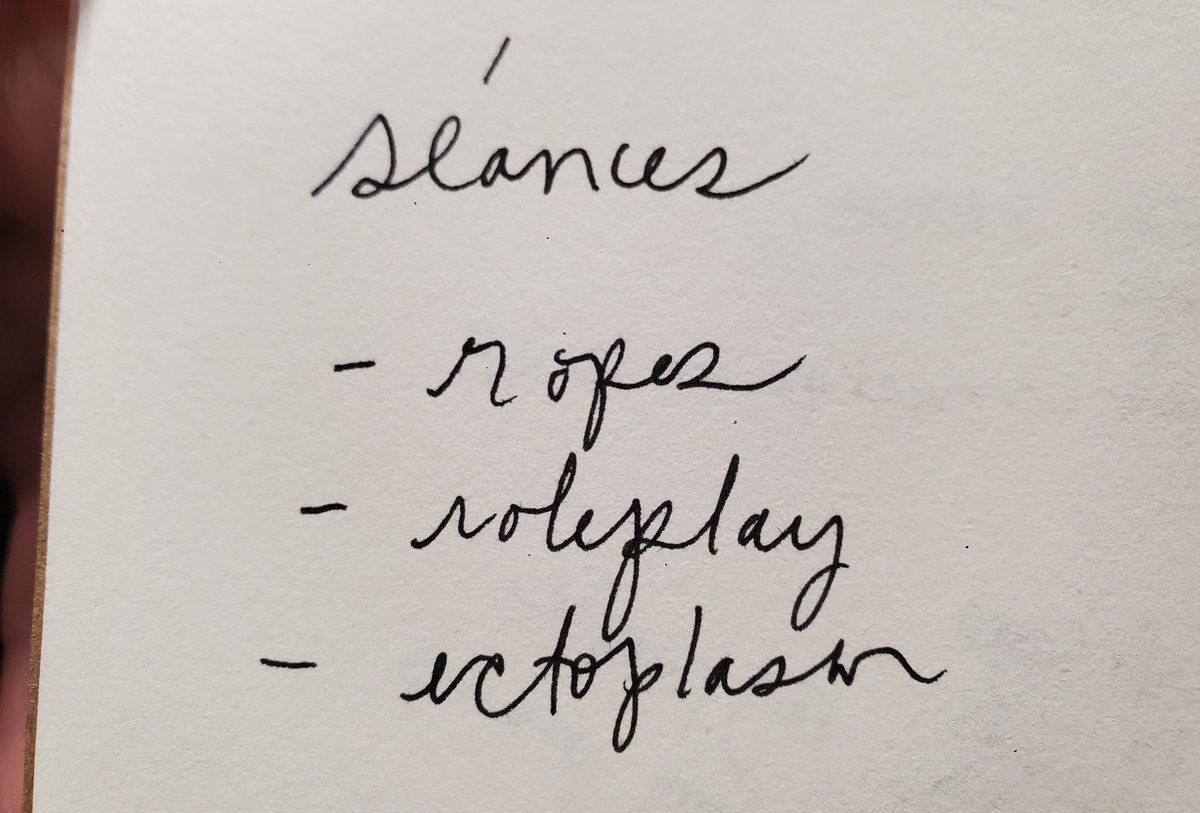 séances
- ropes
- roleplay
- ectoplasm